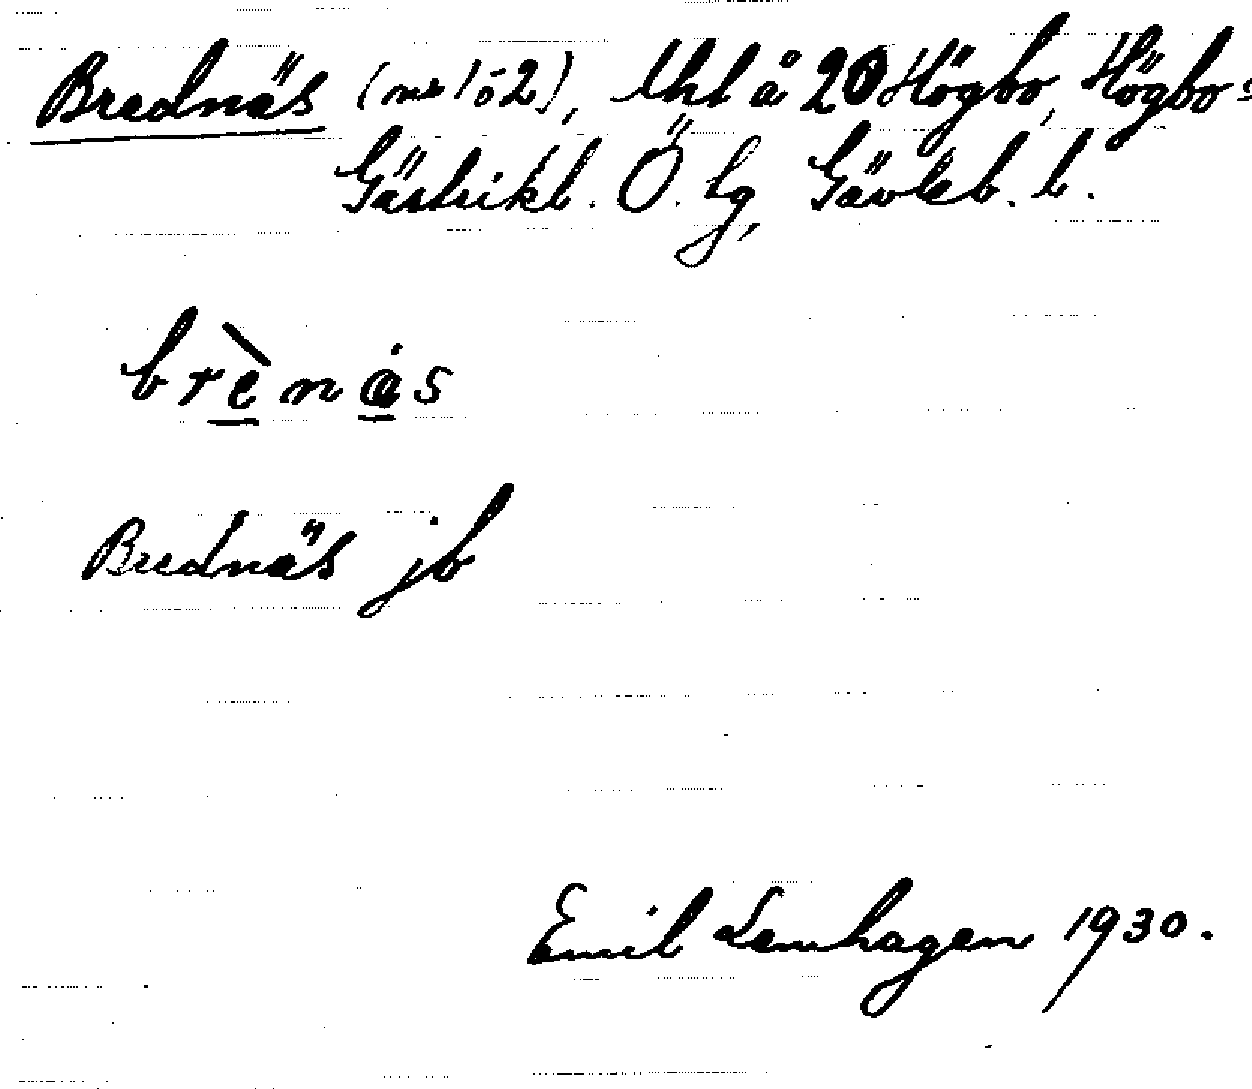 Brednäs (nr 1 o 2), Uhl å 20 Högbo, Högbo s
Gästrikl. Ö. tg, Gävleb. l.
brènȧs
Brednäs jb
Emil Lenhagen 1930.